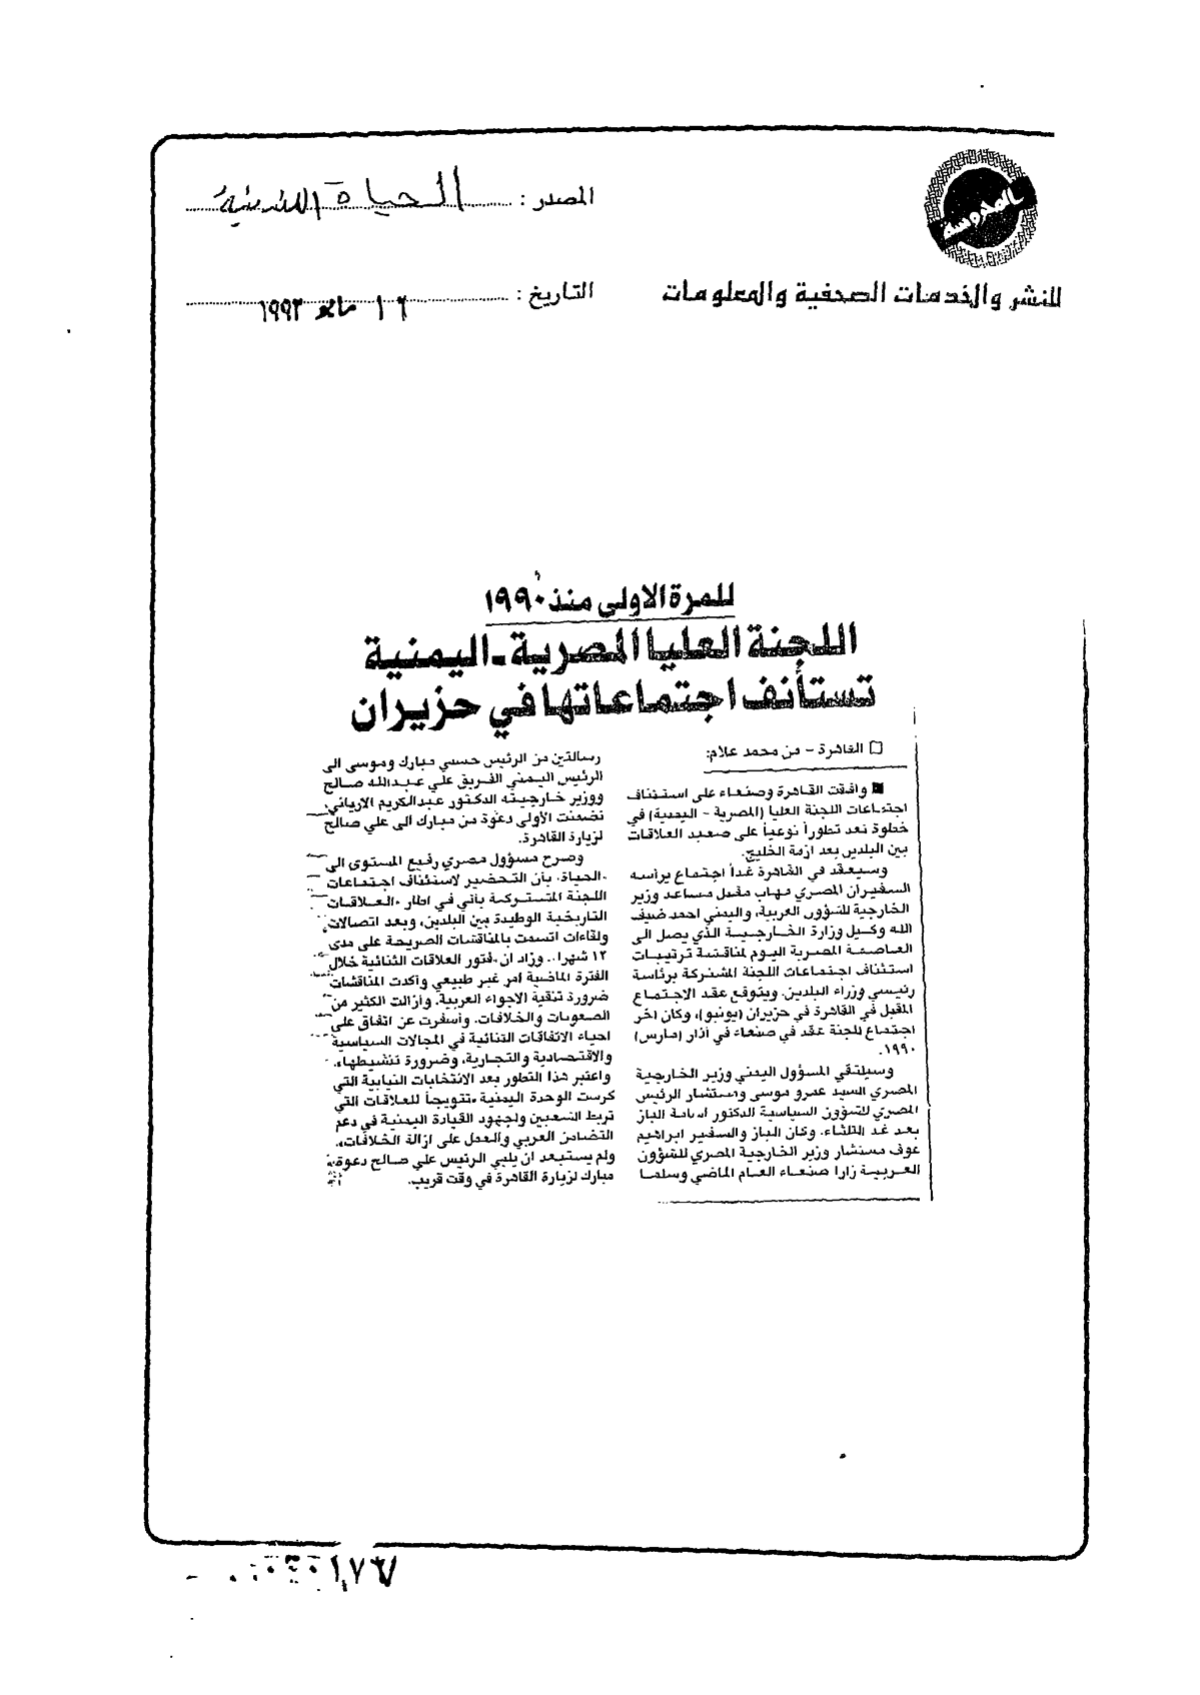 المحروسة
للنشر والخدمات الصحفية والمعلومات
المصدر : الحياة اللندنية
التاريخ : ١٦ مايو ١٩٩٣
للمرة الاولى منذ ١٩٩٠
اللجنة العليا المصرية - اليمنية
تستأنف اجتماعاتها في حزيران
□ القاهرة - من محمد علام:
■ وافقت القاهرة وصنعاء على استئناف
اجتماعات اللجنة العليا (المصرية - اليمنية) في
خطوة تعد تطوراً نوعياً على صعيد العلاقات
بين البلدين بعد ازمة الخليج.
وسيعقد في القاهرة غداً اجتماع يرأسه
السفيران المصري مهاب مقبل مساعد وزير
الخارجية للشؤون العربية، واليمني احمد ضيف
الله وكيل وزارة الخارجية الذي يصل الى
العاصمة المصرية اليوم لمناقشة ترتيبات
استئناف اجتماعات اللجنة المشتركة برئاسة
رئيسي وزراء البلدين. ويتوقع عقد الاجتماع
المقبل في القاهرة في حزيران (يونيو)، وكان اخر
اجتماع للجنة عقد في صنعاء في آذار (مارس)
١٩٩٠.
وسيلتقي المسؤول اليمني وزير الخارجية
المصري السيد عمرو موسى ومستشار الرئيس
المصري للشؤون السياسية الدكتور اسامة الباز
بعد غد الثلثاء. وكان الباز والسفير ابراهيم
عوف مستشار وزير الخارجية المصري للشؤون
العربية زارا صنعاء العام الماضي وسلما
رسالتين من الرئيس حسني مبارك وموسى الى
الرئيس اليمني الفريق علي عبدالله صالح
ووزير خارجيته الدكتور عبدالكريم الارياني.
تضمنت الأولى دعوة من مبارك الى علي صالح
لزيارة القاهرة.
وصرح مسؤول مصري رفيع المستوى الى
«الحياة» بأن التحضير لاستئناف اجتماعات
اللجنة المشتركة يأتي في اطار «العلاقات
التاريخية الوطيدة بين البلدين، وبعد اتصالات
ولقاءات اتسمت بالمناقشات الصريحة على مدى
١٢ شهرا». وزاد ان «فتور العلاقات الثنائية خلال
الفترة الماضية امر غير طبيعي وأكدت المناقشات
ضرورة تنقية الاجواء العربية، وأزالت الكثير من
الصعوبات والخلافات، وأسفرت عن اتفاق على
احياء الاتفاقات الثنائية في المجالات السياسية
والاقتصادية والتجارية، وضرورة تنشيطها».
واعتبر هذا التطور بعد الانتخابات النيابية التي
كرست الوحدة اليمنية «تتويجاً للعلاقات التي
تربط الشعبين ولجهود القيادة اليمنية في دعم
التضامن العربي والعمل على ازالة الخلافات».
ولم يستبعد ان يلبي الرئيس علي صالح دعوة
مبارك لزيارة القاهرة في وقت قريب.